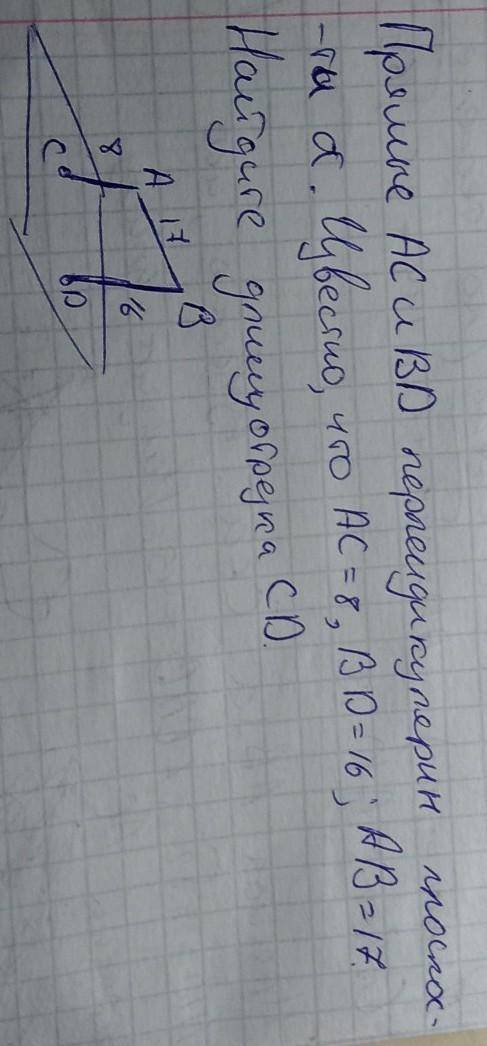 Прямые AC и BD перпендикулярны плоскос-
-ти α. Известно, что AC = 8, BD = 16; AB = 17.
Найдите длину отрезка CD.
A
17
B
8
16
C
D